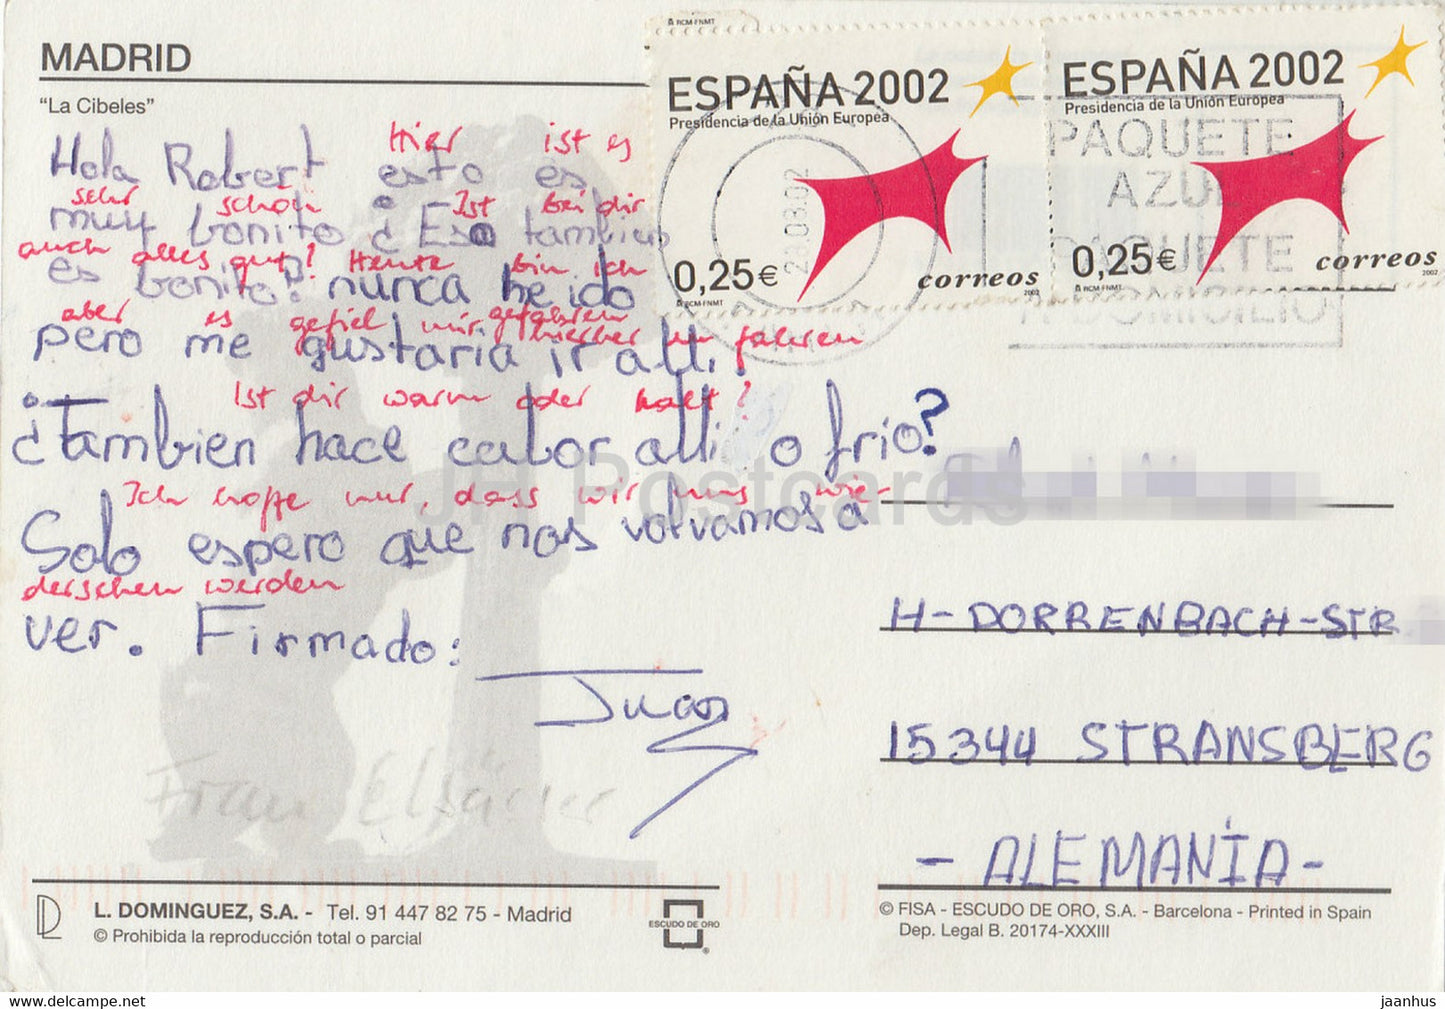 MADRID
"La Cibeles"
RCM-FNMT
ESPAÑA 2002
Presidencia de la Unión Europea
0,25€
correos
2002
RCM-FNMT
ESPAÑA 2002
Presidencia de la Unión Europea
0,25€
correos
2002
RCM-FNMT
PAQUETE
AZUL
PAQUETE
A DOMICILIO
Hier ist es
Hola Robert esto es
sehr schön Ist bei dir
muy bonito ¿Eso tambien
auch alles gut? Heute bin ich
es bonito? nunca he ido
aber es gefiel mir gefahren hierher zu fahren
pero me gustaria ir alli.
Ist dir warm oder kalt?
¿Tambien hace calor alli o frio?
Ich hoffe nur, dass wir uns wie-
Solo espero que nos volvamos a
dersehen werden
ver. Firmado:
Juan
JH Postcards
H-DORRENBACH-STR
15344 STRANSBERG
- ALEMANIA-
L. DOMINGUEZ, S.A. - Tel. 91 447 82 75 - Madrid
© Prohibida la reproducción total o parcial
ESCUDO DE ORO
© FISA - ESCUDO DE ORO, S.A. - Barcelona - Printed in Spain
Dep. Legal B. 20174-XXXIII
www.delcampe.net
jaanhus